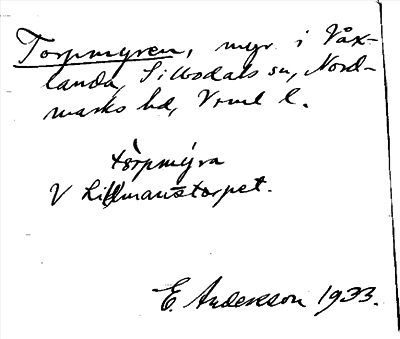 Torpmyren, myr i Våx-
landa, Sillbodals sn, Nord-
marks hd, Vrml l.
tòrpmýra
V Lillmanstorpet.
E. Andersson 1933.